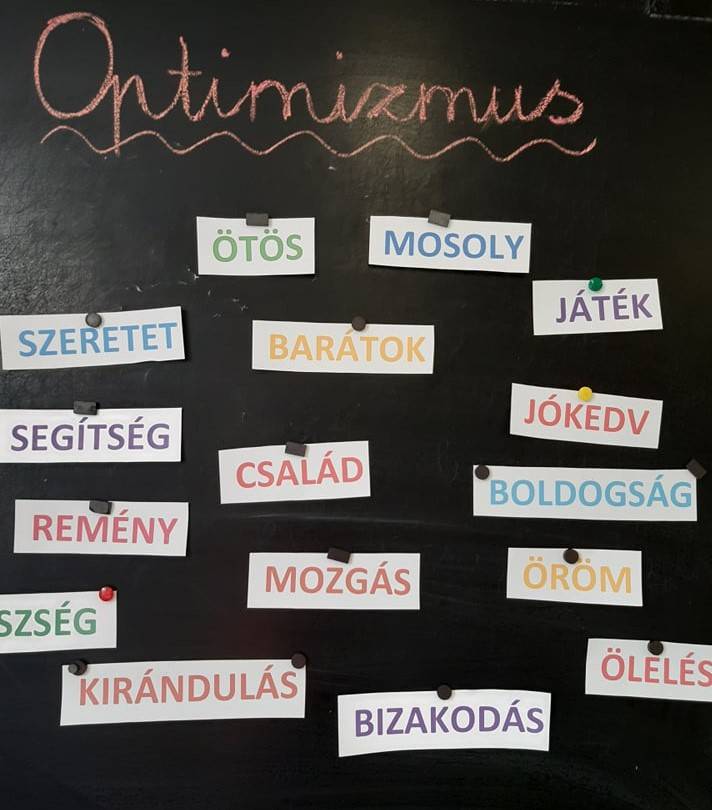 Optimizmus
ÖTÖS
MOSOLY
JÁTÉK
SZERETET
BARÁTOK
JÓKEDV
SEGÍTSÉG
CSALÁD
BOLDOGSÁG
REMÉNY
MOZGÁS
ÖRÖM
SZSÉG
ÖLELÉS
KIRÁNDULÁS
BIZAKODÁS